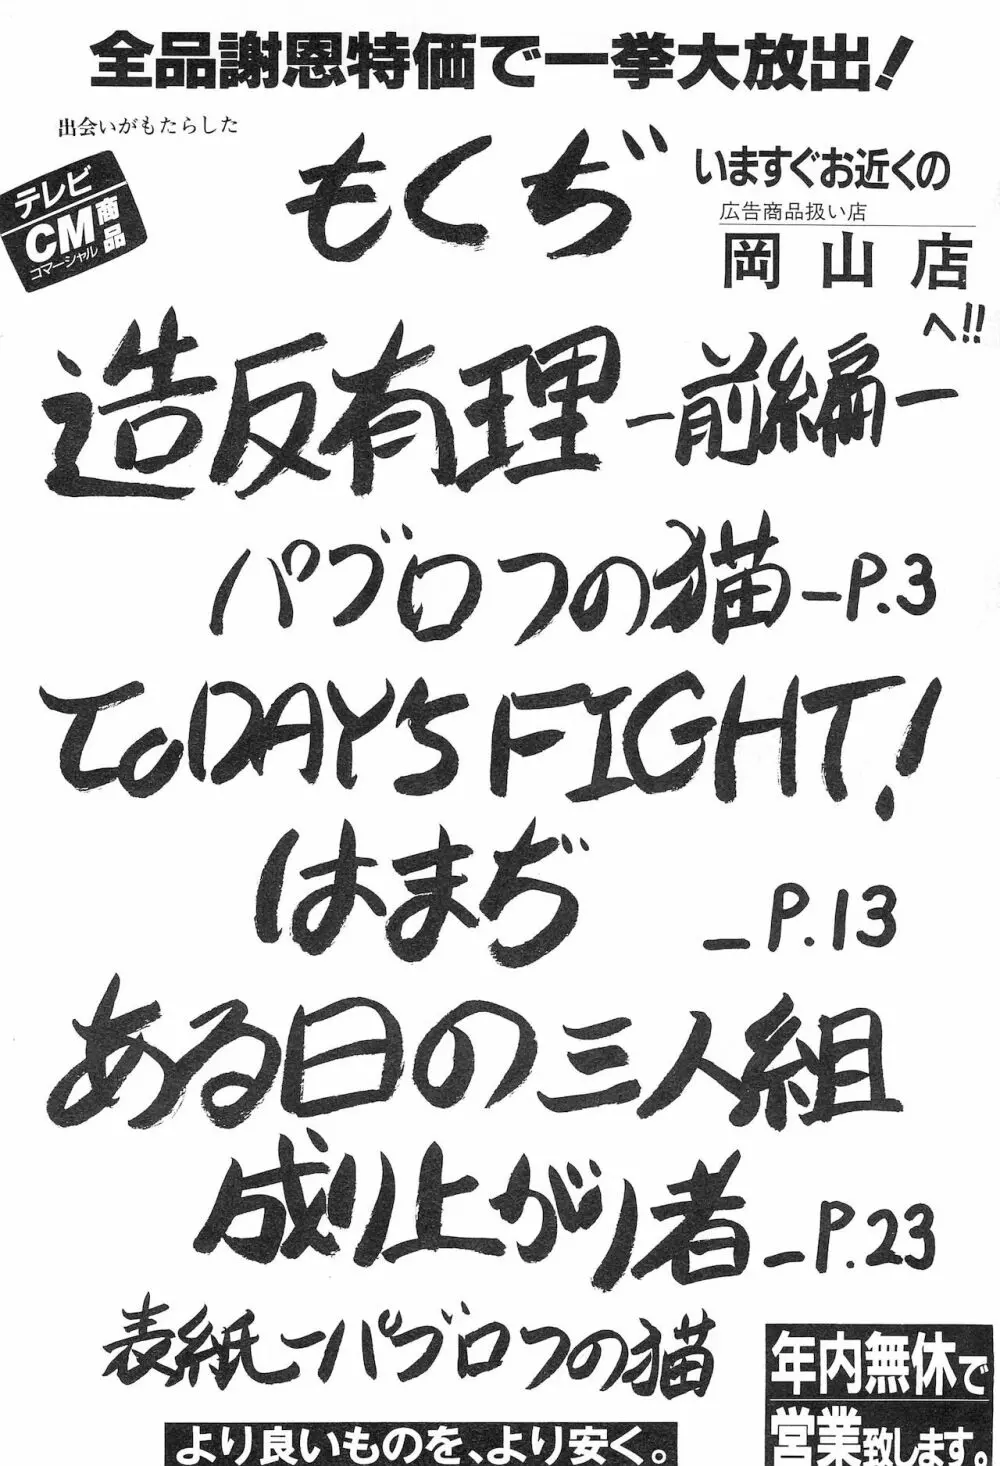 全品謝恩特価で一挙大放出!
出会いがもたらした
テレビ
CM商品
コマーシャル
もくぢ
いますぐお近くの
広告商品扱い店
岡山店
へ!!
造反有理ー前編ー
パブロフの猫ーP.3
ToDAY'S FIGHT!
はまぢ
ーP.13
ある日の三人組
成り上がり者ーP.23
表紙ーパブロフの猫
年内無休で
営業致します。
より良いものを、より安く。